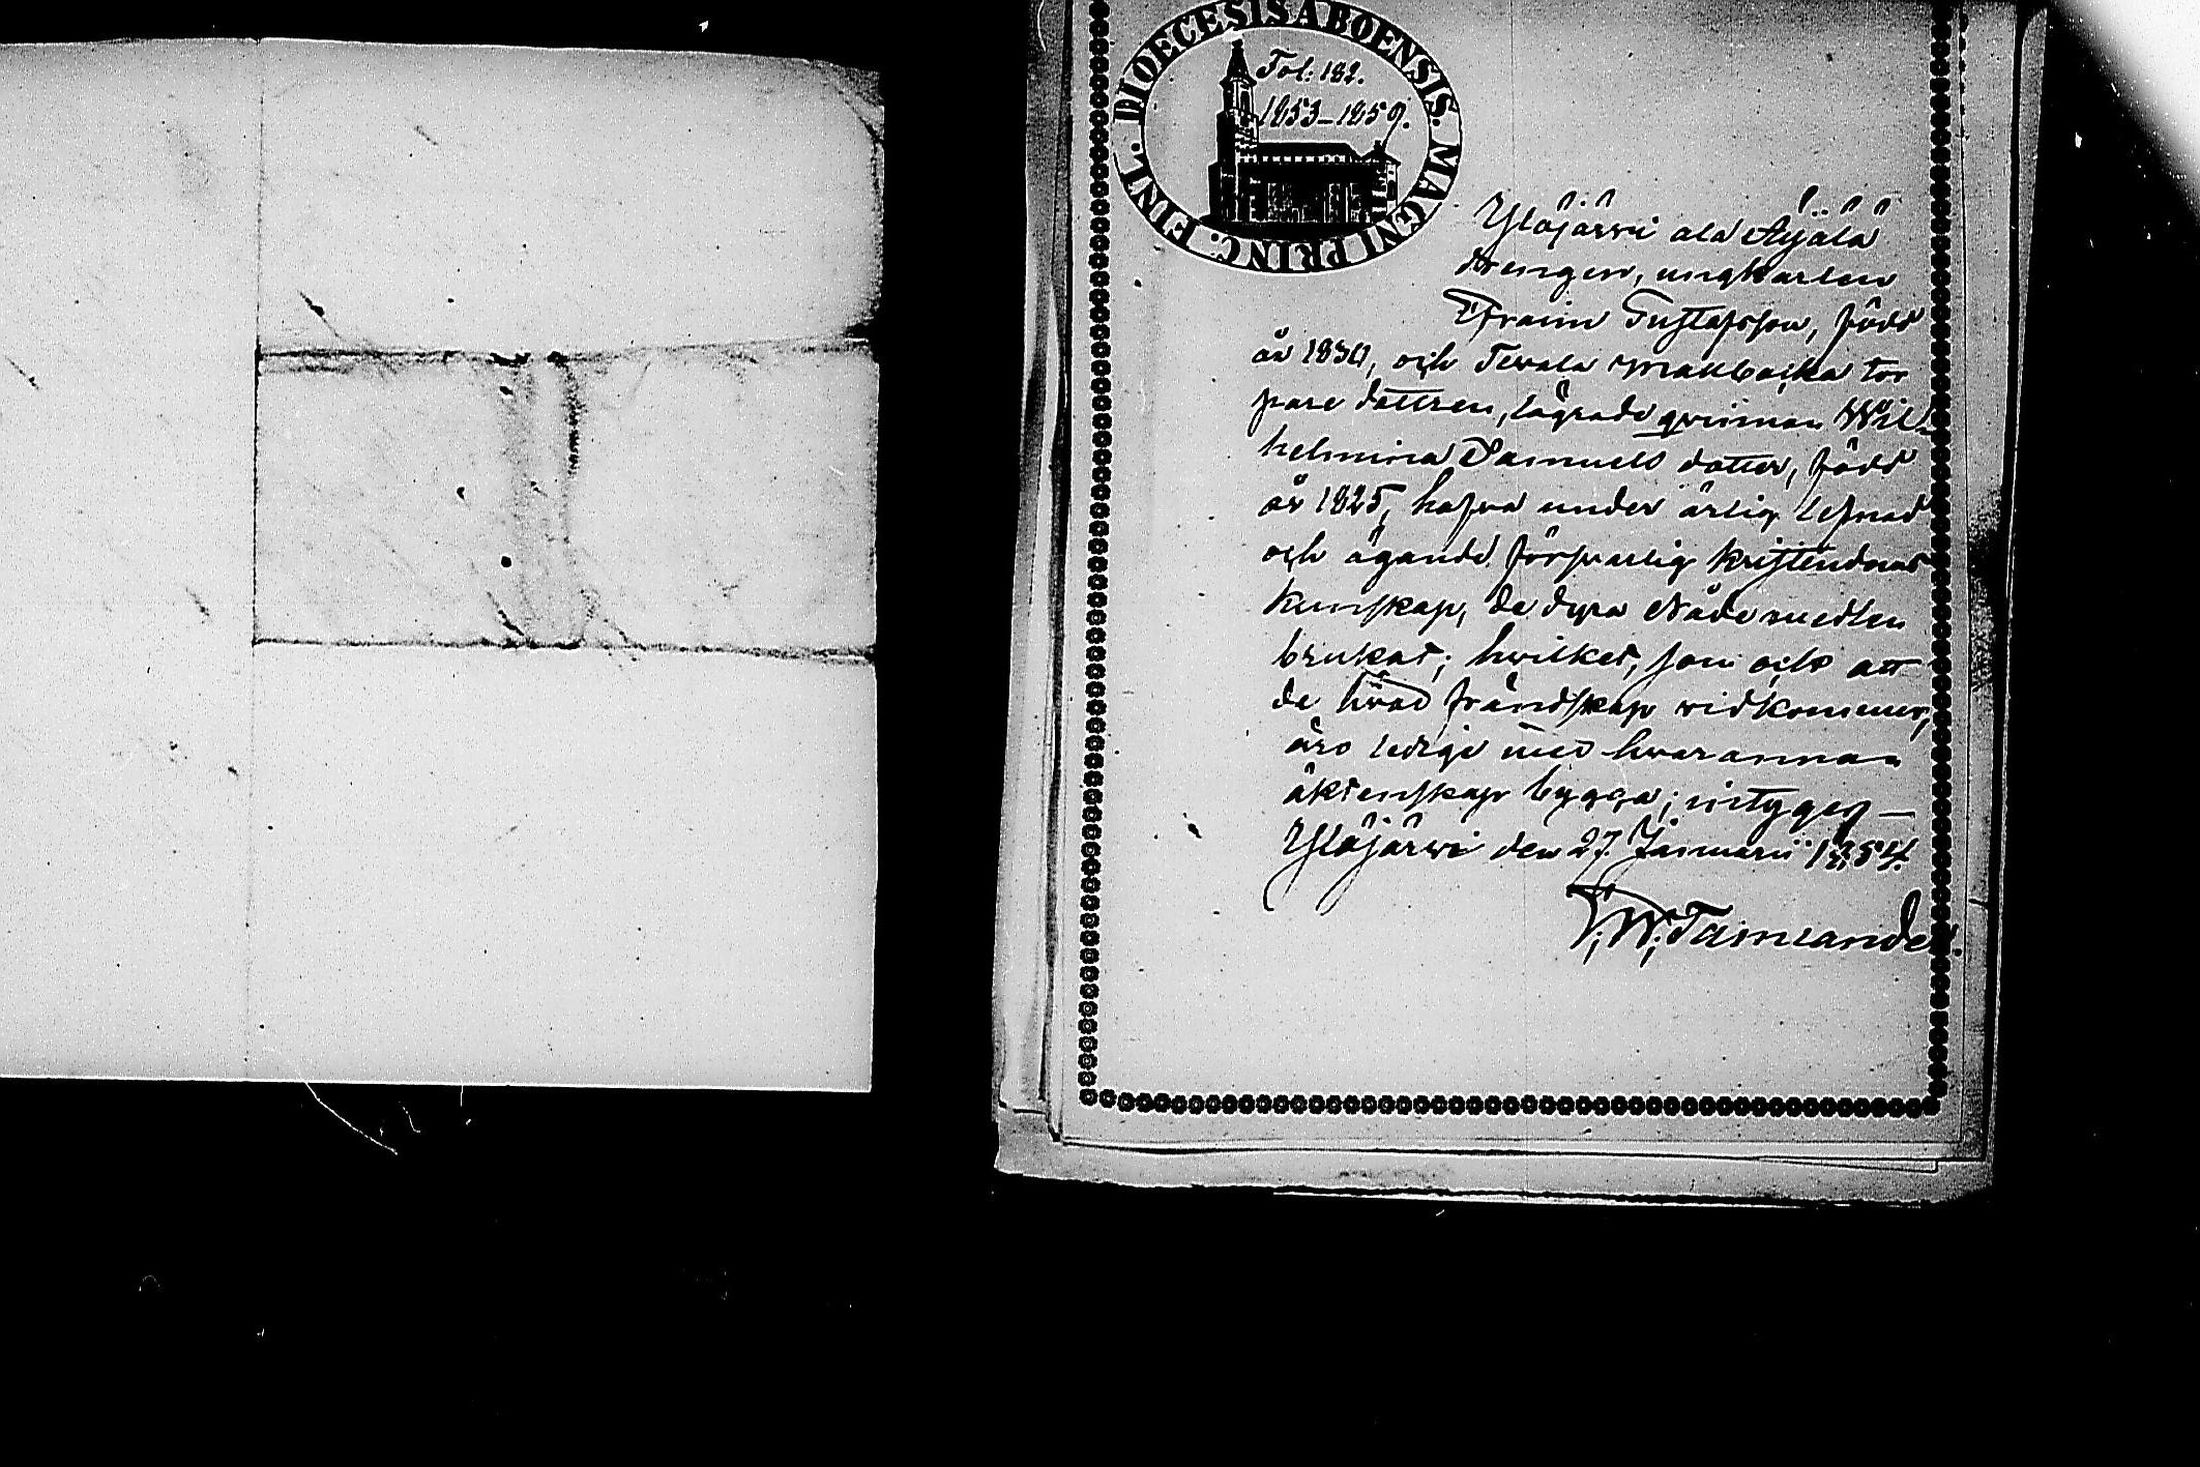 DIOECESIS ABOENSIS. MAGNI PRINC. FINL.
Fol: 182.
1853–1859.
Ylöjärvi ala Äijälä
drengen, ungkarlen
Efraim Gustafsson, född
år 1830, och Tevala tor
pare dottren, lägrade qvinnan Wil-
helmina Samuels dotter, född
år 1825, hafva under ärlig lefnad
och ägande försvarlig kristendoms
kunskap, de dyra Nåde medlen
brukat; hvilket, som och att
de hvad frändskap vidkommer,
äro ledige med hvarannan
äktenskap bygga; intygas –
Ylöjärvi den 27. Januarii 1854.